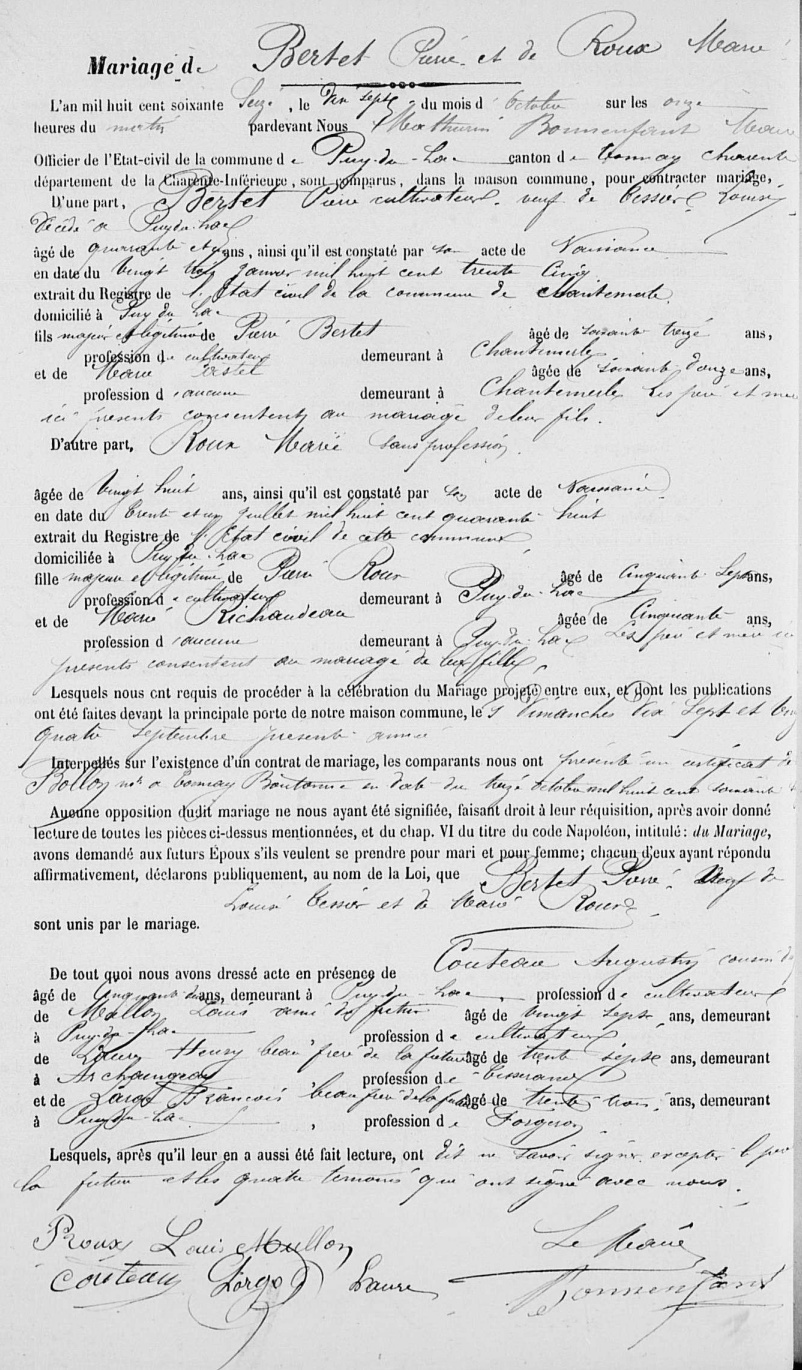 Mariage de Bertet Pierre et de Roux Marie
L'an mil huit cent soixante Seize, le Vingt Sept du mois d'Octobre sur les onze
heures du matin pardevant Nous Mathurin Bonnenfant Maire
Officier de l'Etat-civil de la commune de Puy-du-Lac canton de Tonnay Charente
département de la Charente-Inférieure, sont comparus, dans la maison commune, pour contracter mariage,
D'une part, Bertet Pierre cultivateur veuf de Tessier Louise
Décédé a Puy-du-Lac
âgé de quarante et un ans, ainsi qu'il est constaté par son acte de Naissance
en date du Vingt janvier mil huit cent trente Cinq
extrait du Registre de l'Etat civil de la commune de Chantemerle
domicilié à Puy du Lac
fils majeur et légitime de Pierre Bertet âgé de soixante treize ans,
profession de cultivateur demeurant à Chantemerle
et de Marie âgée de soixante douze ans,
profession d'aucune demeurant à Chantemerle Les père et mère
ici présents consentent au mariage de leur fils.
D'autre part, Roux Marie sans profession.
âgée de Vingt huit ans, ainsi qu'il est constaté par son acte de Naissance
en date du trente et un juillet mil huit cent quarante huit
extrait du Registre de l'Etat civil de cette commune
domiciliée à Puy du Lac
fille majeure et légitime de Pierre Roux âgé de Cinquante Sept ans,
profession de cultivateur demeurant à Puy-du-Lac
et de Marie Richaudeau âgée de Cinquante ans,
profession d'aucune demeurant à Puy-du-Lac Les père et mère ici
présents consentent au mariage de leur fille
Lesquels nous ont requis de procéder à la célébration du Mariage projeté entre eux, et dont les publications
ont été faites devant la principale porte de notre maison commune, les Dimanches Dix Sept et Vingt
quatre Septembre présente année
Interpellés sur l'existence d'un contrat de mariage, les comparants nous ont présenté un certificat de
Bollon nre a Tonnay Boutonne en date du treize octobre mil huit cent soixante
Aucune opposition dudit mariage ne nous ayant été signifiée, faisant droit à leur réquisition, après avoir donné
lecture de toutes les pièces ci-dessus mentionnées, et du chap. VI du titre du code Napoléon, intitulé : du Mariage,
avons demandé aux futurs Époux s'ils veulent se prendre pour mari et pour femme; chacun d'eux ayant répondu
affirmativement, déclarons publiquement, au nom de la Loi, que Bertet Pierre Veuf de
Louise Tessier et de Marie Roux
sont unis par le mariage.
De tout quoi nous avons dressé acte en présence de Couteau Augustin cousin du
âgé de Cinquante ans, demeurant à Puy-du-Lac profession de cultivateur
de Mullon Louis ami du futur âgé de vingt sept ans, demeurant
à Puy-du-Lac profession de cultivateur
de Henry beau frère de la future âgé de trente sept ans, demeurant
à Archaingeay profession de tisserand
et de Largé François beau frère de la future âgé de trente trois ans, demeurant
à Puy-du-Lac, profession de Forgeron
Lesquels, après qu'il leur en a aussi été fait lecture, ont dit ne savoir signer excepté le père
la future et les quatre temoins qui ont signé avec nous.
Roux Louis Mullon Le Maire
Couteau Bonnenfant